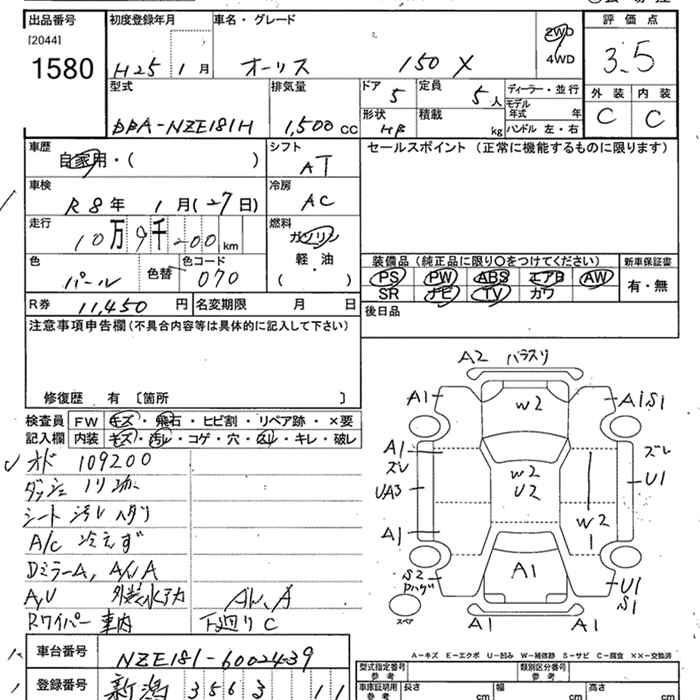 出品番号
[2044]
1580
初度登録年月
H25 1月
車名・グレード
オーリス 150 X
2WD
4WD
評価点
3.5
外装 内装
C C
型式
DBA-NZE181H
排気量
1,500 cc
ドア 5
定員 5人
形状 HB
積載 kg
ディーラー・並行
モデル年式 年
ハンドル 左・右
車歴
自家用・( )
シフト
AT
セールスポイント (正常に機能するものに限ります)
車検
R8年 1月(27日)
冷房
AC
走行
10万9千200km
燃料
ガソリン
軽・油
( )
色
パール
色替
色コード
070
装備品 (純正品に限り○をつけてください)
PS PW ABS エアB AW
SR ナビ TV カワ
新車保証書
有・無
R券 11,450円
名変期限 月 日
後日品
注意事項申告欄(不具合内容等は具体的に記入して下さい)
修復歴 有 〔箇所 〕
検査員記入欄
FW キズ・飛石・ヒビ割・リペア跡・×要
内装 キズ・汚レ・コゲ・穴・スレ・キレ・破レ
オド 109200
ダッシュ
シート 汚レ ハタリ
A/C 冷えず
DミラーA, A/W A
Rワイパー 車内
下廻りC
A2
A1 W2 A1 S1
A1 ズレ
W2
U2
ズレ
UA3 U1
W2
1
A1
S2
A1
U1
S1
スペア
A1 A1
A-キズ E-エクボ U-凹み W-補修跡 S-サビ C-腐食 XX-交換済
車台番号
NZE181-6002439
登録番号
新潟 3563 11
型式指定番号
参考
類別区分番号
参考
車庫証明用
参考
長さ cm
幅 cm
高さ cm